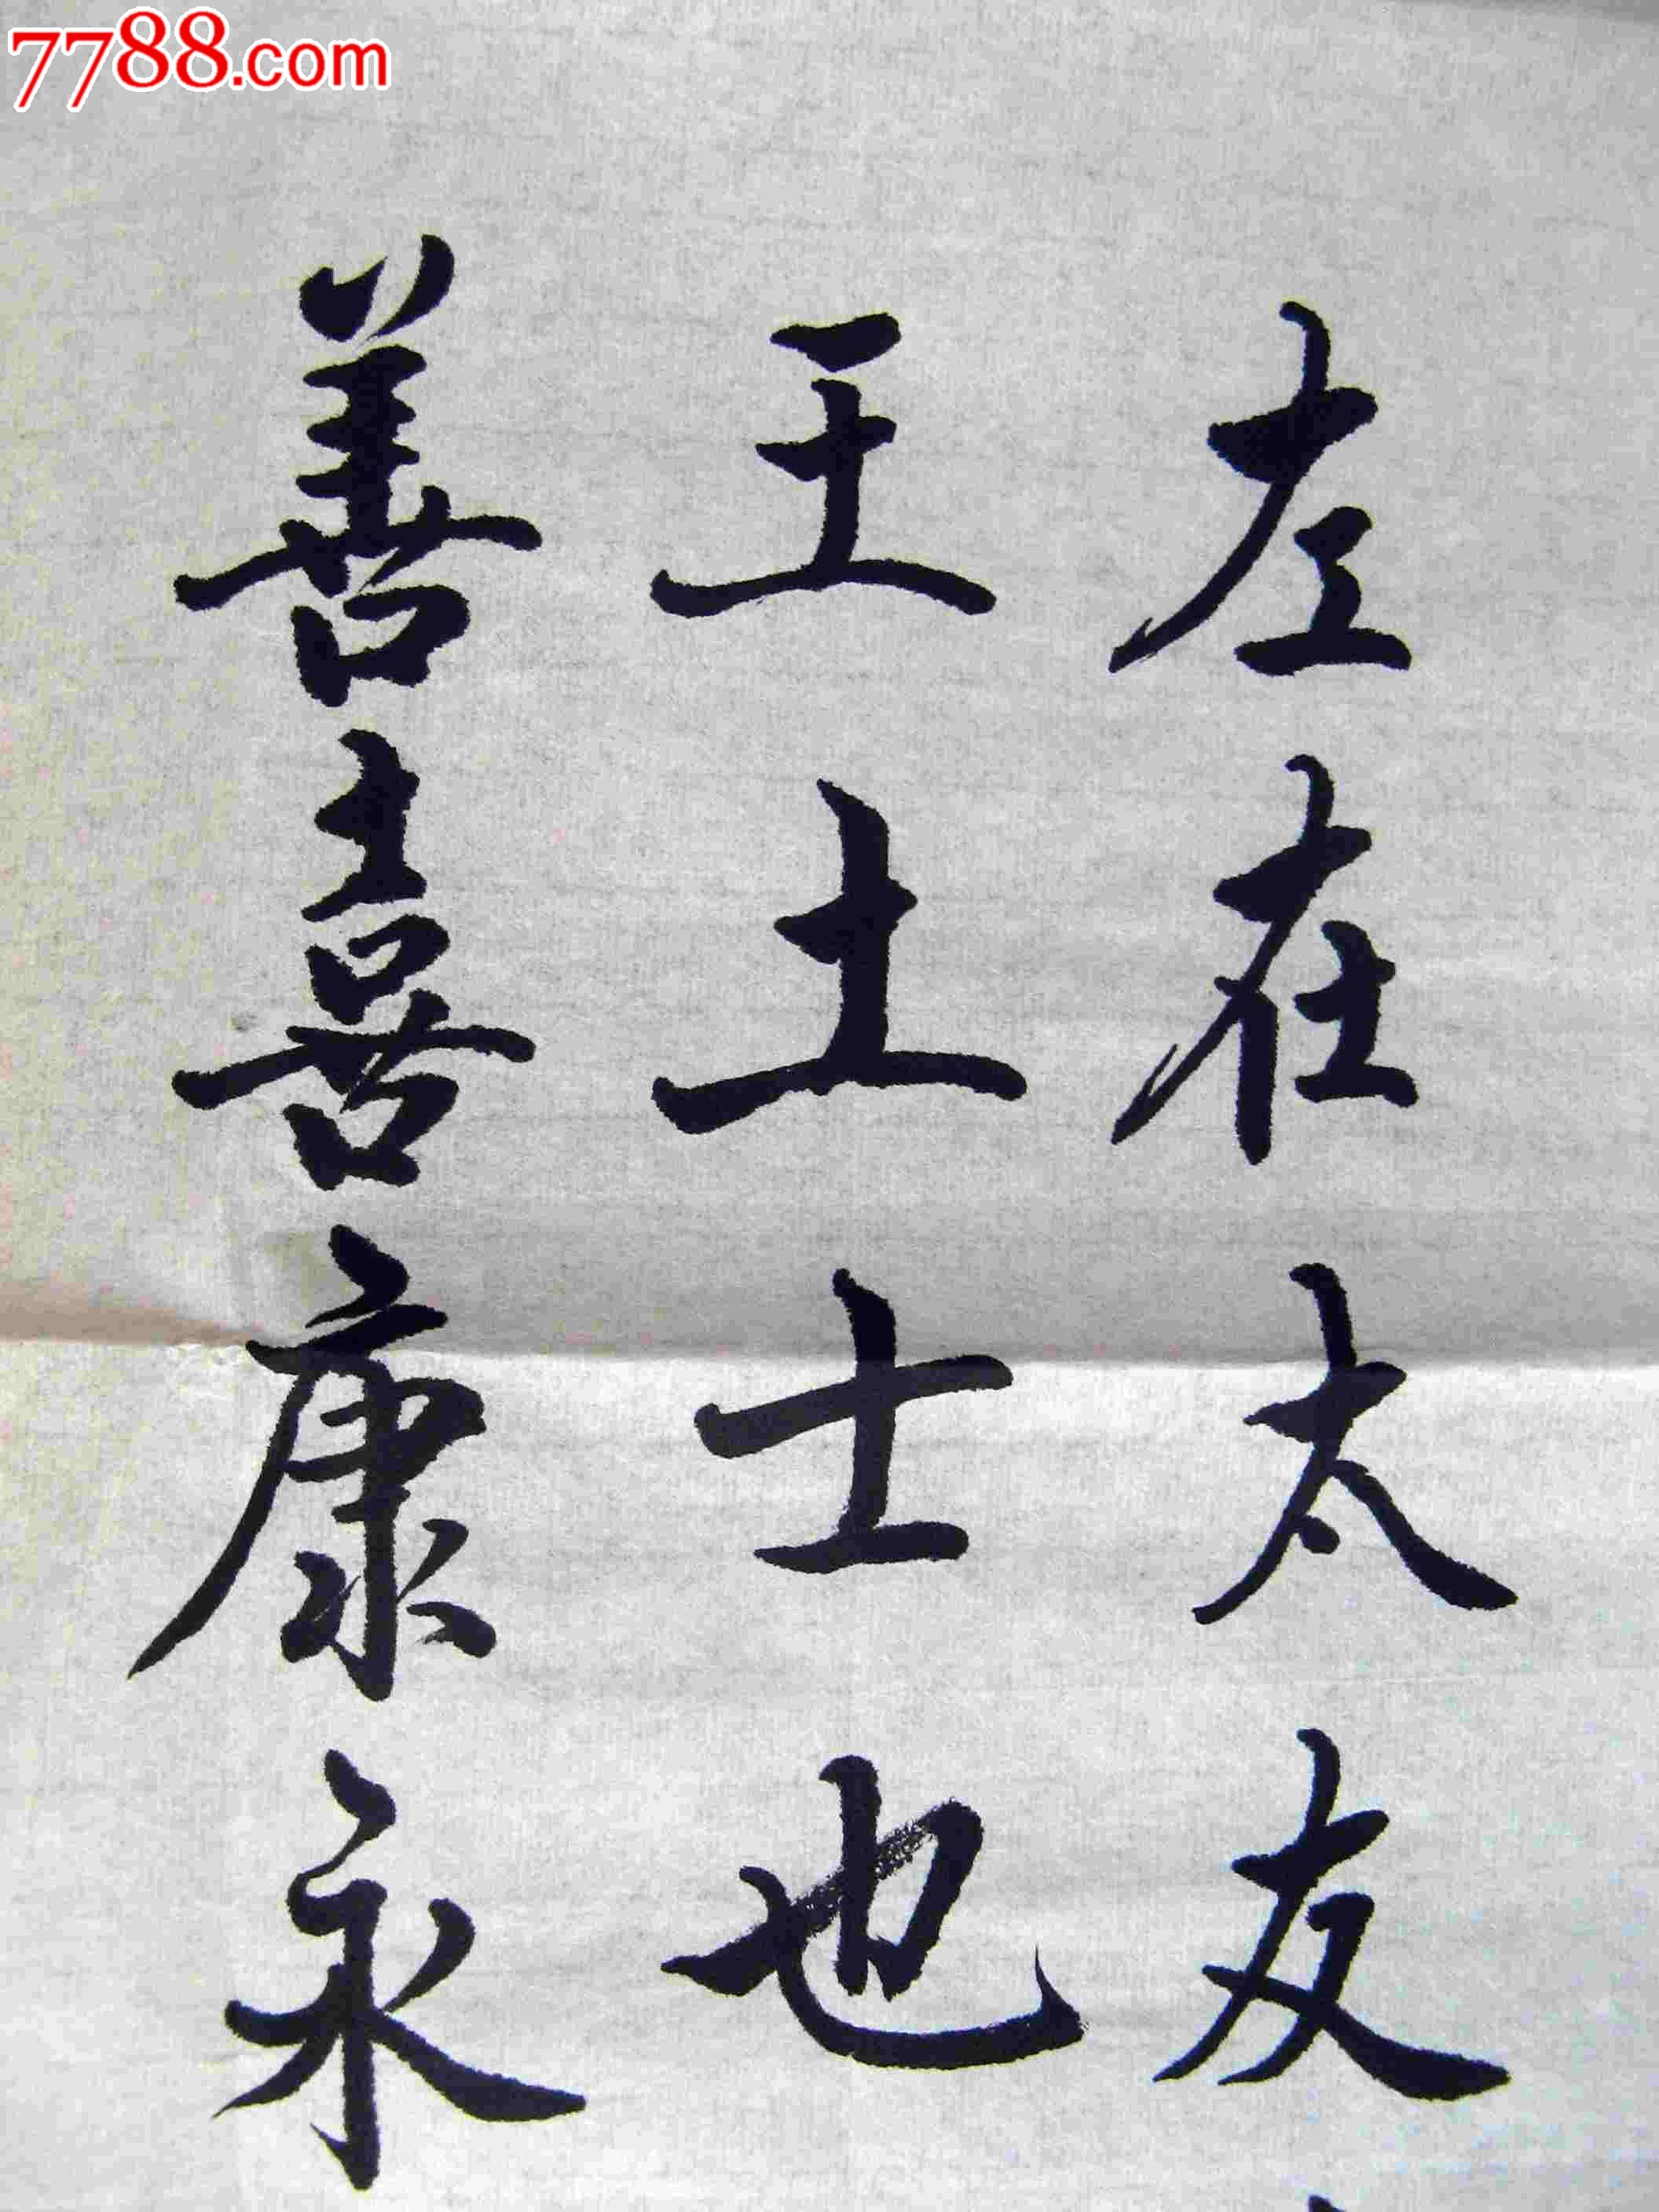 7788.com
左在太友
王土士也
善喜康永